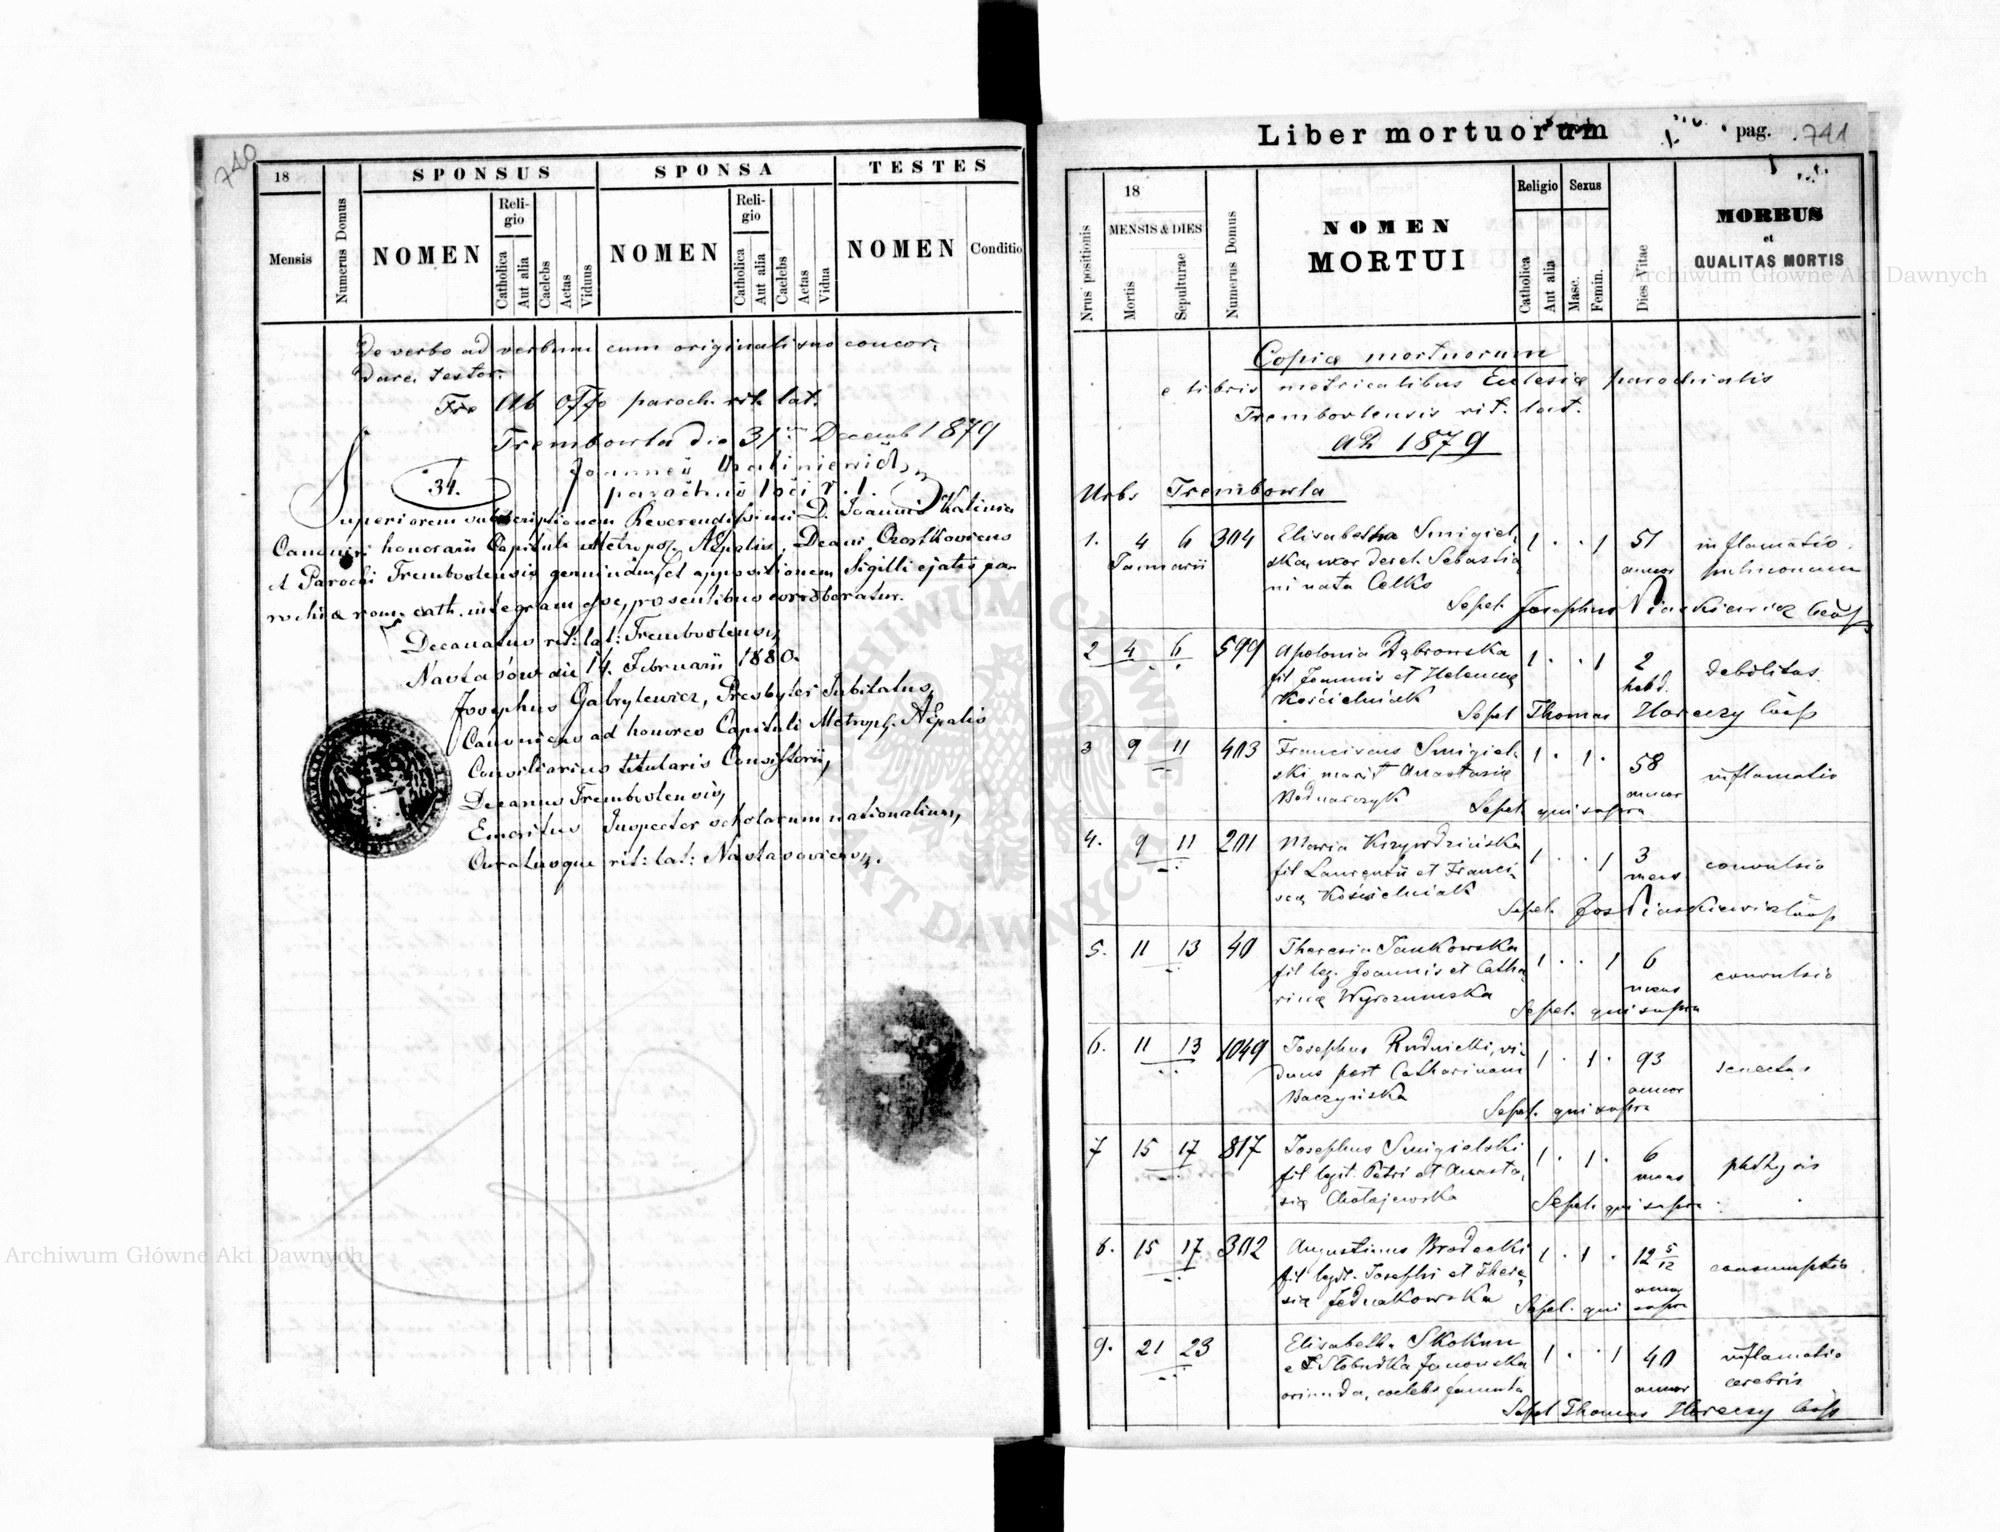 740
18
SPONSUS
SPONSA
TESTES
Mensis
Numerus Domus
NOMEN
Religio
Catholica
Aut alia
Caelebs
Aetas
Viduus
NOMEN
Religio
Catholica
Aut alia
Caelebs
Aetas
Vidua
NOMEN
Conditio
De verbo ad verbum cum originali suo concor-
dare testor.
Ab offo paroch. rit. lat.
Trembowla die 31 Decemb 1879
parochus loci r. l.
34.
Superiorem subscriptionem Reverendissimi D. Joannis Kalinie
Canonici honorarii Capituli Metropol. AEpalis, Decani
et Parochi Trembovlensis genuinam, et appositionem Sigilli ejatis pa-
rochiæ rom. cath. integram esse, presentibus corroboratur.
Decanatus rit: lat: Trembovlensis,
Nastasów die 14. Februarii 1880.
Josephus Gabrylewicz, Presbyter Jubilatus,
Canonicus ad honores Capituli Metropl. AEpalis
Consiliarius titularis Consistorii,
Decanus Trembovlensis,
Emeritus Inspector scholarum nationalium,
Curatusque rit: lat: Nastasoviensis.
Liber mortuorum
pag. 741
Nrus positionis
18
MENSIS & DIES
Mortis
Sepulturae
Numerus Domus
NOMEN
MORTUI
Religio
Catholica
Aut alia
Sexus
Masc.
Femin.
Dies Vitae
MORBUS
et
QUALITAS MORTIS
Copia mortuorum
e libris metricalibus Ecclesiæ parochialis
Trembovlensis rit. lat.
ad 1879
Urbs Trembowla
1. 4 6 304 Elisabetha Smigiel- 1 . . 1 51 inflamatio
Januarii ska, uxor derel. Sebastia- annor pulmonum
ni nata Celko
Sepel. Josephus Piaskiewicz Coop.
2 4 6 599 Apolonia Dąbrowska 1 . . 1 2 debilitas
fil Joannis et Helenæ hebd.
Kościelniak
Sepel Thomas Horeczy Coop
3 9 11 403 Franciscus Smigiel- 1 . 1 . 58 inflamatio
ski marit Anastasiæ annor
Bednarczyk Sepel. qui supra
4. 9 11 201 Maria Krzywdzińska 1 . . 1 3 convulsio
fil Laurentii et Franci- mens
scæ Kościelniak
Sepel. Jos Piaskiewicz Coop
5. 11 13 40 Theresia Jankowska 1 . . 1 6 convulsio
fil leg. Joannis et Catha- mens
rinæ Wyrozumska Sepel. qui supra
6. 11 13 1049 Josephus Rudnicki, vi- 1 . 1 . 93 senectus
duus post Catharinam annor
Baczyńska Sepel. qui supra
7 15 17 817 Josephus Smigielski 1 . 1 . 6 phthysis
fil legit. Petri et Anasta- mens
siæ Chołajewska Sepel. qui supra
8. 15 17 302 Augustinus Brodecki 1 . 1 . 12 5/12 consumptio
fil legit. Josephi et There- annor
siæ Jednakowska Sepel. qui supra
9. 21 23 Elisabetha Skokun 1 . . 1 40 inflamatio
e Słobudka Janowska annor cerebris
oriunda, coelebs famula
Sepel Thomas Horeczy Coop
Archiwum Główne Akt Dawnych
Archiwum Główne Akt Dawnych
ARCHIWUM GŁÓWNE AKT DAWNYCH